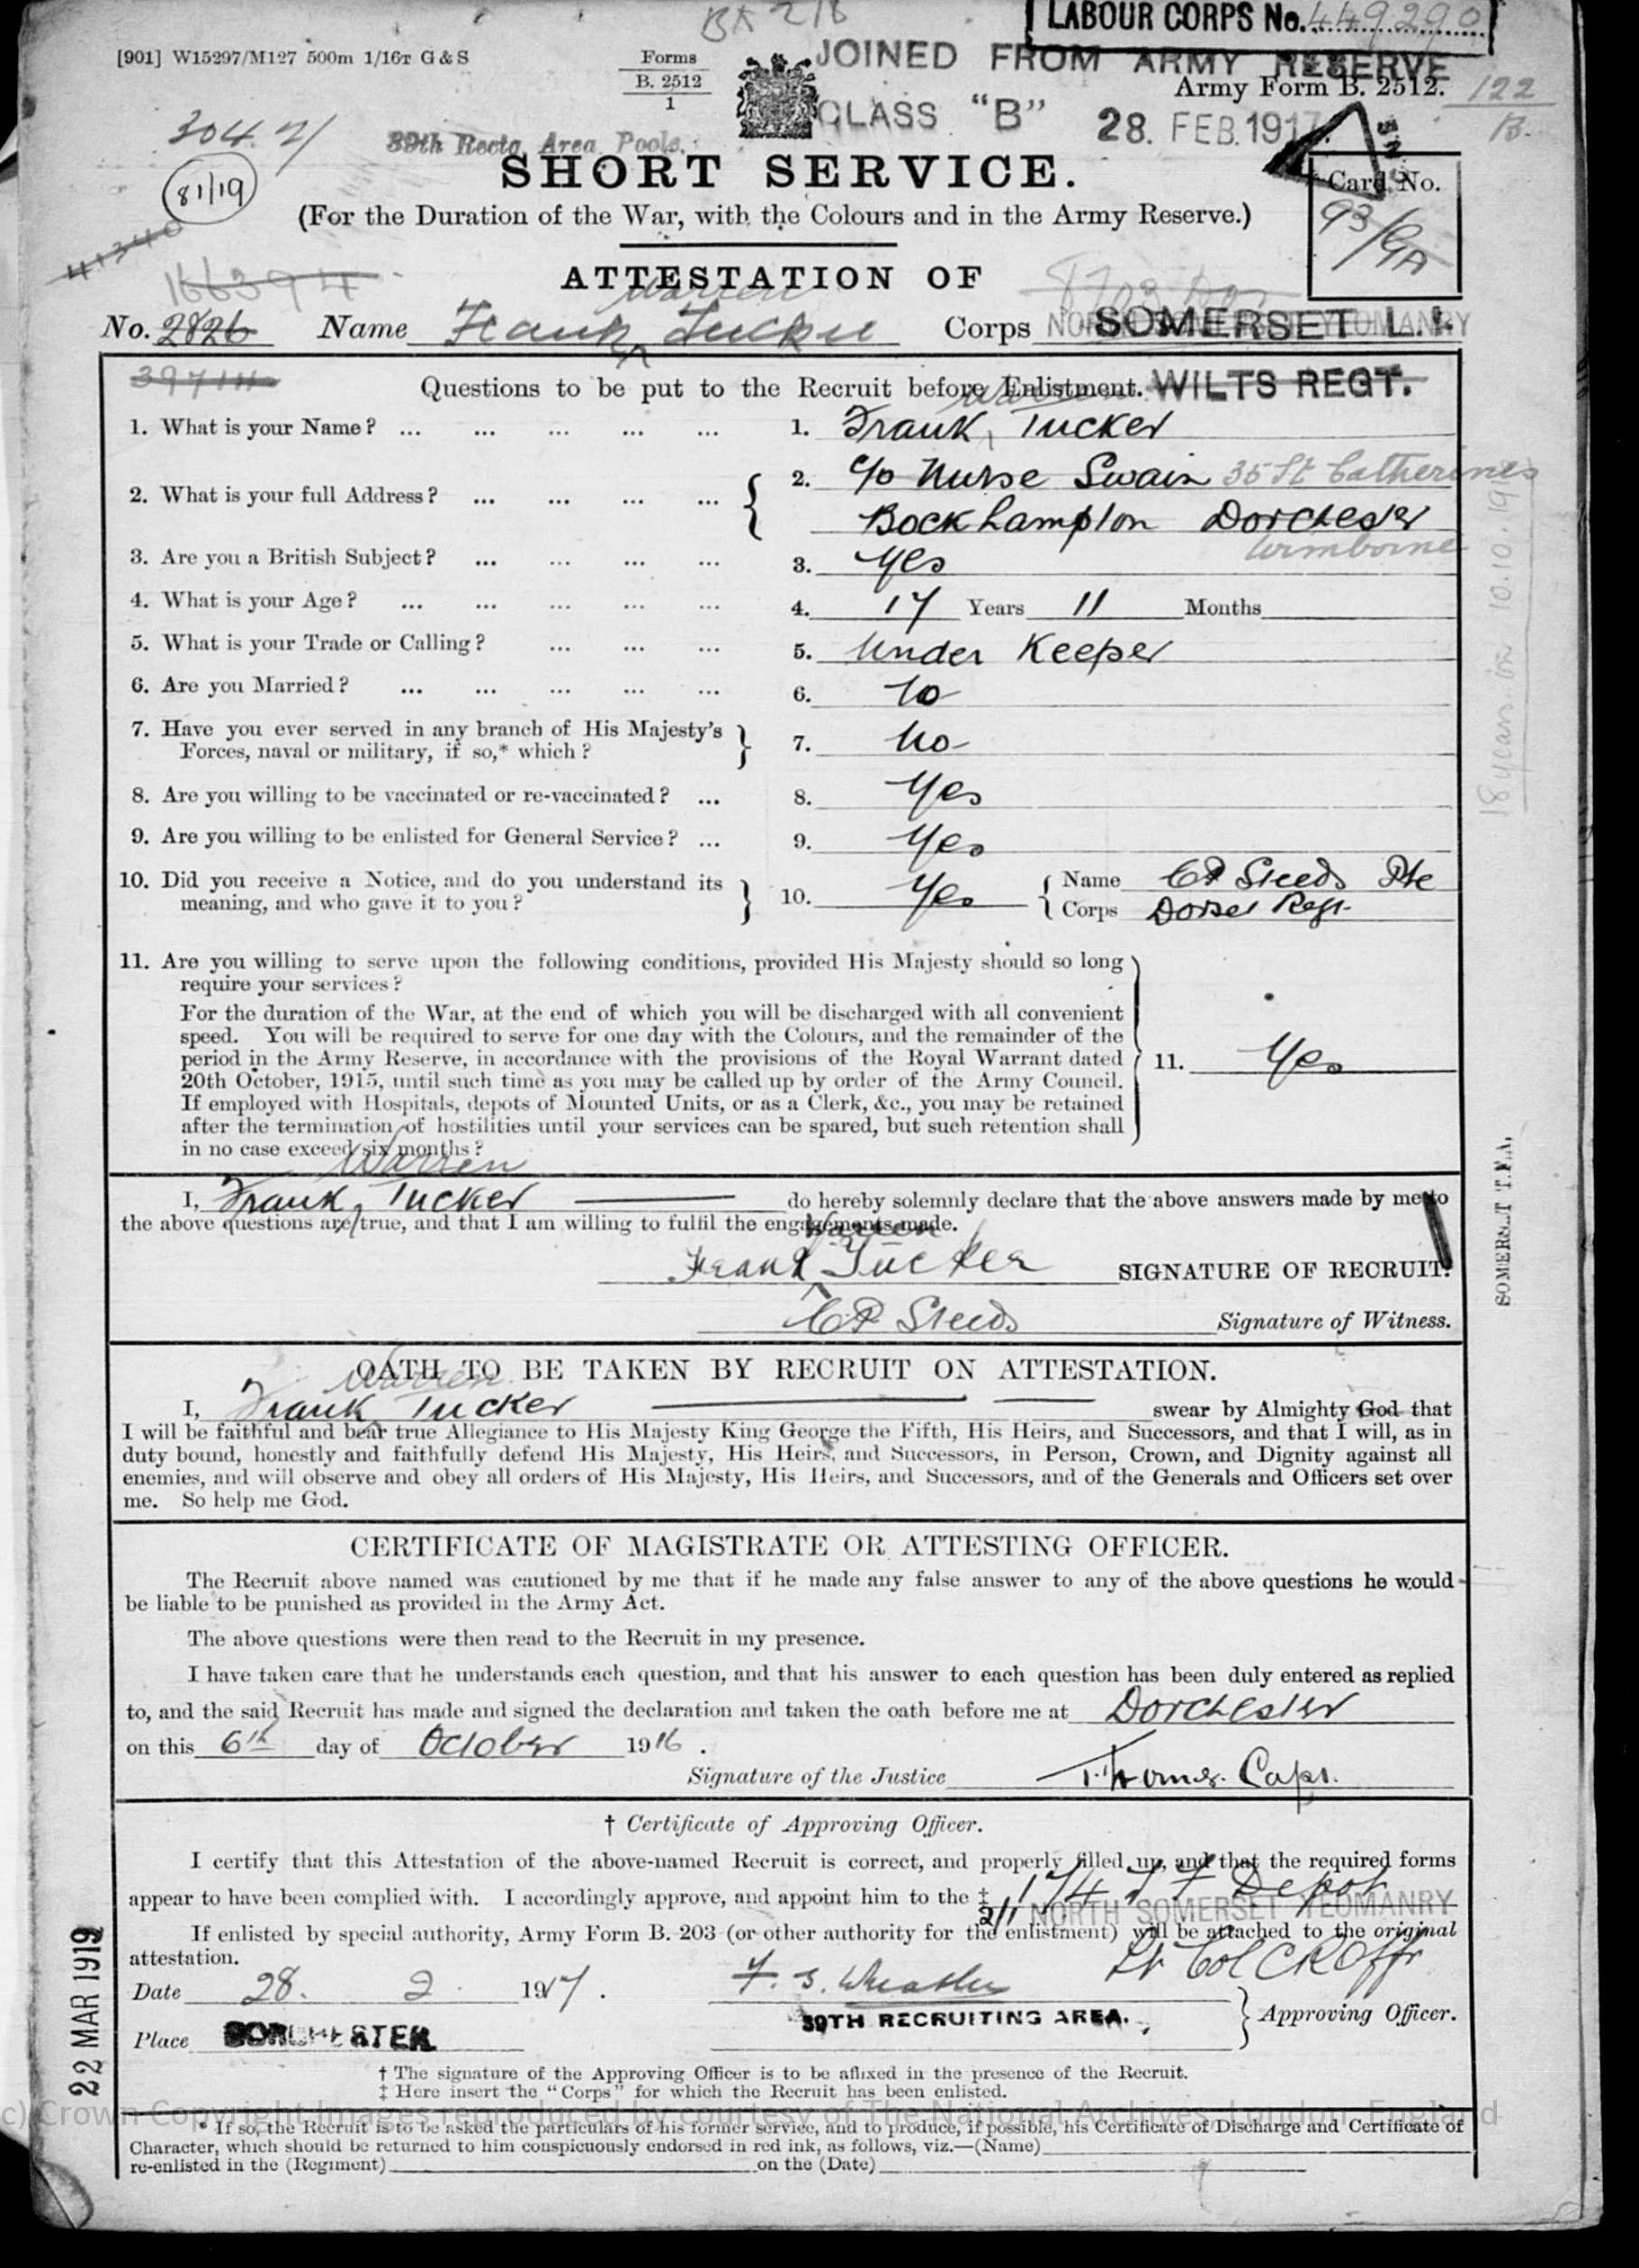 BA 218
LABOUR CORPS No. 449290
[901] W15297/M127 500m 1/16T G & S
Forms
B. 2512
1
JOINED FROM ARMY RESERVE
CLASS "B" 28. FEB. 1917.
Army Form B. 2512.
122
B.
304 21
39th Rectg. Area Pools.
81/19
SHORT SERVICE.
(For the Duration of the War, with the Colours and in the Army Reserve.)
Card No.
93/GA
41340
166394
ATTESTATION OF
Warren
No. 2826 Name Frank Tucker Corps SOMERSET L.I.
NORTH SOMERSET YEOMANRY
WILTS REGT.
Questions to be put to the Recruit before Enlistment.
Warren
1. What is your Name? ... ... ... ... ... 1. Frank Tucker
2. What is your full Address? ... ... ... ... 2. c/o Nurse Swain 35 St Catherines
Bockhampton Dorchester
Wimborne
3. Are you a British Subject? ... ... ... ... 3. Yes
4. What is your Age? ... ... ... ... ... 4. 17 Years 11 Months
5. What is your Trade or Calling? ... ... ... 5. Under Keeper
6. Are you Married? ... ... ... ... ... 6. No
7. Have you ever served in any branch of His Majesty's
Forces, naval or military, if so,* which? 7. No
8. Are you willing to be vaccinated or re-vaccinated? ... 8. Yes
9. Are you willing to be enlisted for General Service? ... 9. Yes
10. Did you receive a Notice, and do you understand its
meaning, and who gave it to you? 10. Yes
Name CP Steeds Pte
Corps Dorset Regt.
18 years on 10.10.19
11. Are you willing to serve upon the following conditions, provided His Majesty should so long
require your services?
For the duration of the War, at the end of which you will be discharged with all convenient
speed. You will be required to serve for one day with the Colours, and the remainder of the
period in the Army Reserve, in accordance with the provisions of the Royal Warrant dated
20th October, 1915, until such time as you may be called up by order of the Army Council.
If employed with Hospitals, depots of Mounted Units, or as a Clerk, &c., you may be retained
after the termination of hostilities until your services can be spared, but such retention shall
in no case exceed six months?
11. Yes
Warren
I, Frank Tucker do hereby solemnly declare that the above answers made by me to
the above questions are true, and that I am willing to fulfil the engagements made.
Warren
Frank Tucker SIGNATURE OF RECRUIT.
CP Steeds Signature of Witness.
SOMERSET T.F.A.
OATH TO BE TAKEN BY RECRUIT ON ATTESTATION.
Warren
I, Frank Tucker swear by Almighty God that
I will be faithful and bear true Allegiance to His Majesty King George the Fifth, His Heirs, and Successors, and that I will, as in
duty bound, honestly and faithfully defend His Majesty, His Heirs, and Successors, in Person, Crown, and Dignity against all
enemies, and will observe and obey all orders of His Majesty, His Heirs, and Successors, and of the Generals and Officers set over
me. So help me God.
CERTIFICATE OF MAGISTRATE OR ATTESTING OFFICER.
The Recruit above named was cautioned by me that if he made any false answer to any of the above questions he would
be liable to be punished as provided in the Army Act.
The above questions were then read to the Recruit in my presence.
I have taken care that he understands each question, and that his answer to each question has been duly entered as replied
to, and the said Recruit has made and signed the declaration and taken the oath before me at Dorchester
on this 6th day of October 1916.
Signature of the Justice Capt.
† Certificate of Approving Officer.
I certify that this Attestation of the above-named Recruit is correct, and properly filled up, and that the required forms
appear to have been complied with. I accordingly approve, and appoint him to the ‡ Depot
2/1 NORTH SOMERSET YEOMANRY
If enlisted by special authority, Army Form B. 203 (or other authority for the enlistment) will be attached to the original
attestation.
Lt Col
Date 28. 2. 1917.
39TH RECRUITING AREA.
Approving Officer.
Place DORCHESTER
22 MAR 1919
† The signature of the Approving Officer is to be affixed in the presence of the Recruit.
‡ Here insert the "Corps" for which the Recruit has been enlisted.
(c) Crown Copyright Images reproduced by courtesy of The National Archives, London, England
* If so, the Recruit is to be asked the particulars of his former service, and to produce, if possible, his Certificate of Discharge and Certificate of
Character, which should be returned to him conspicuously endorsed in red ink, as follows, viz.—(Name)
re-enlisted in the (Regiment) on the (Date)